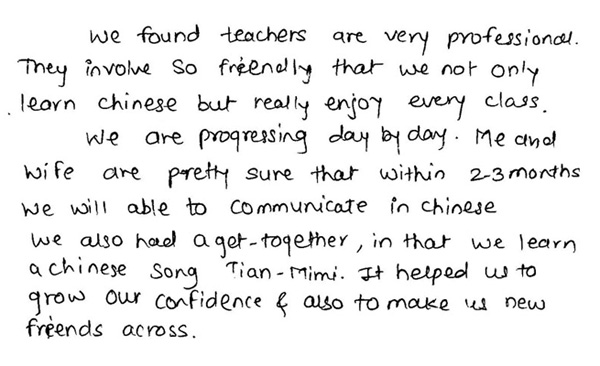 We found teachers are very professional.
They involve so friendly that we not only
learn chinese but really enjoy every class.
We are progressing day by day. Me and
wife are pretty sure that within 2-3 months
we will able to communicate in chinese
We also had a get-together, in that we learn
a chinese song Tian-Mimi. It helped us to
grow our confidence & also to make us new
friends across.